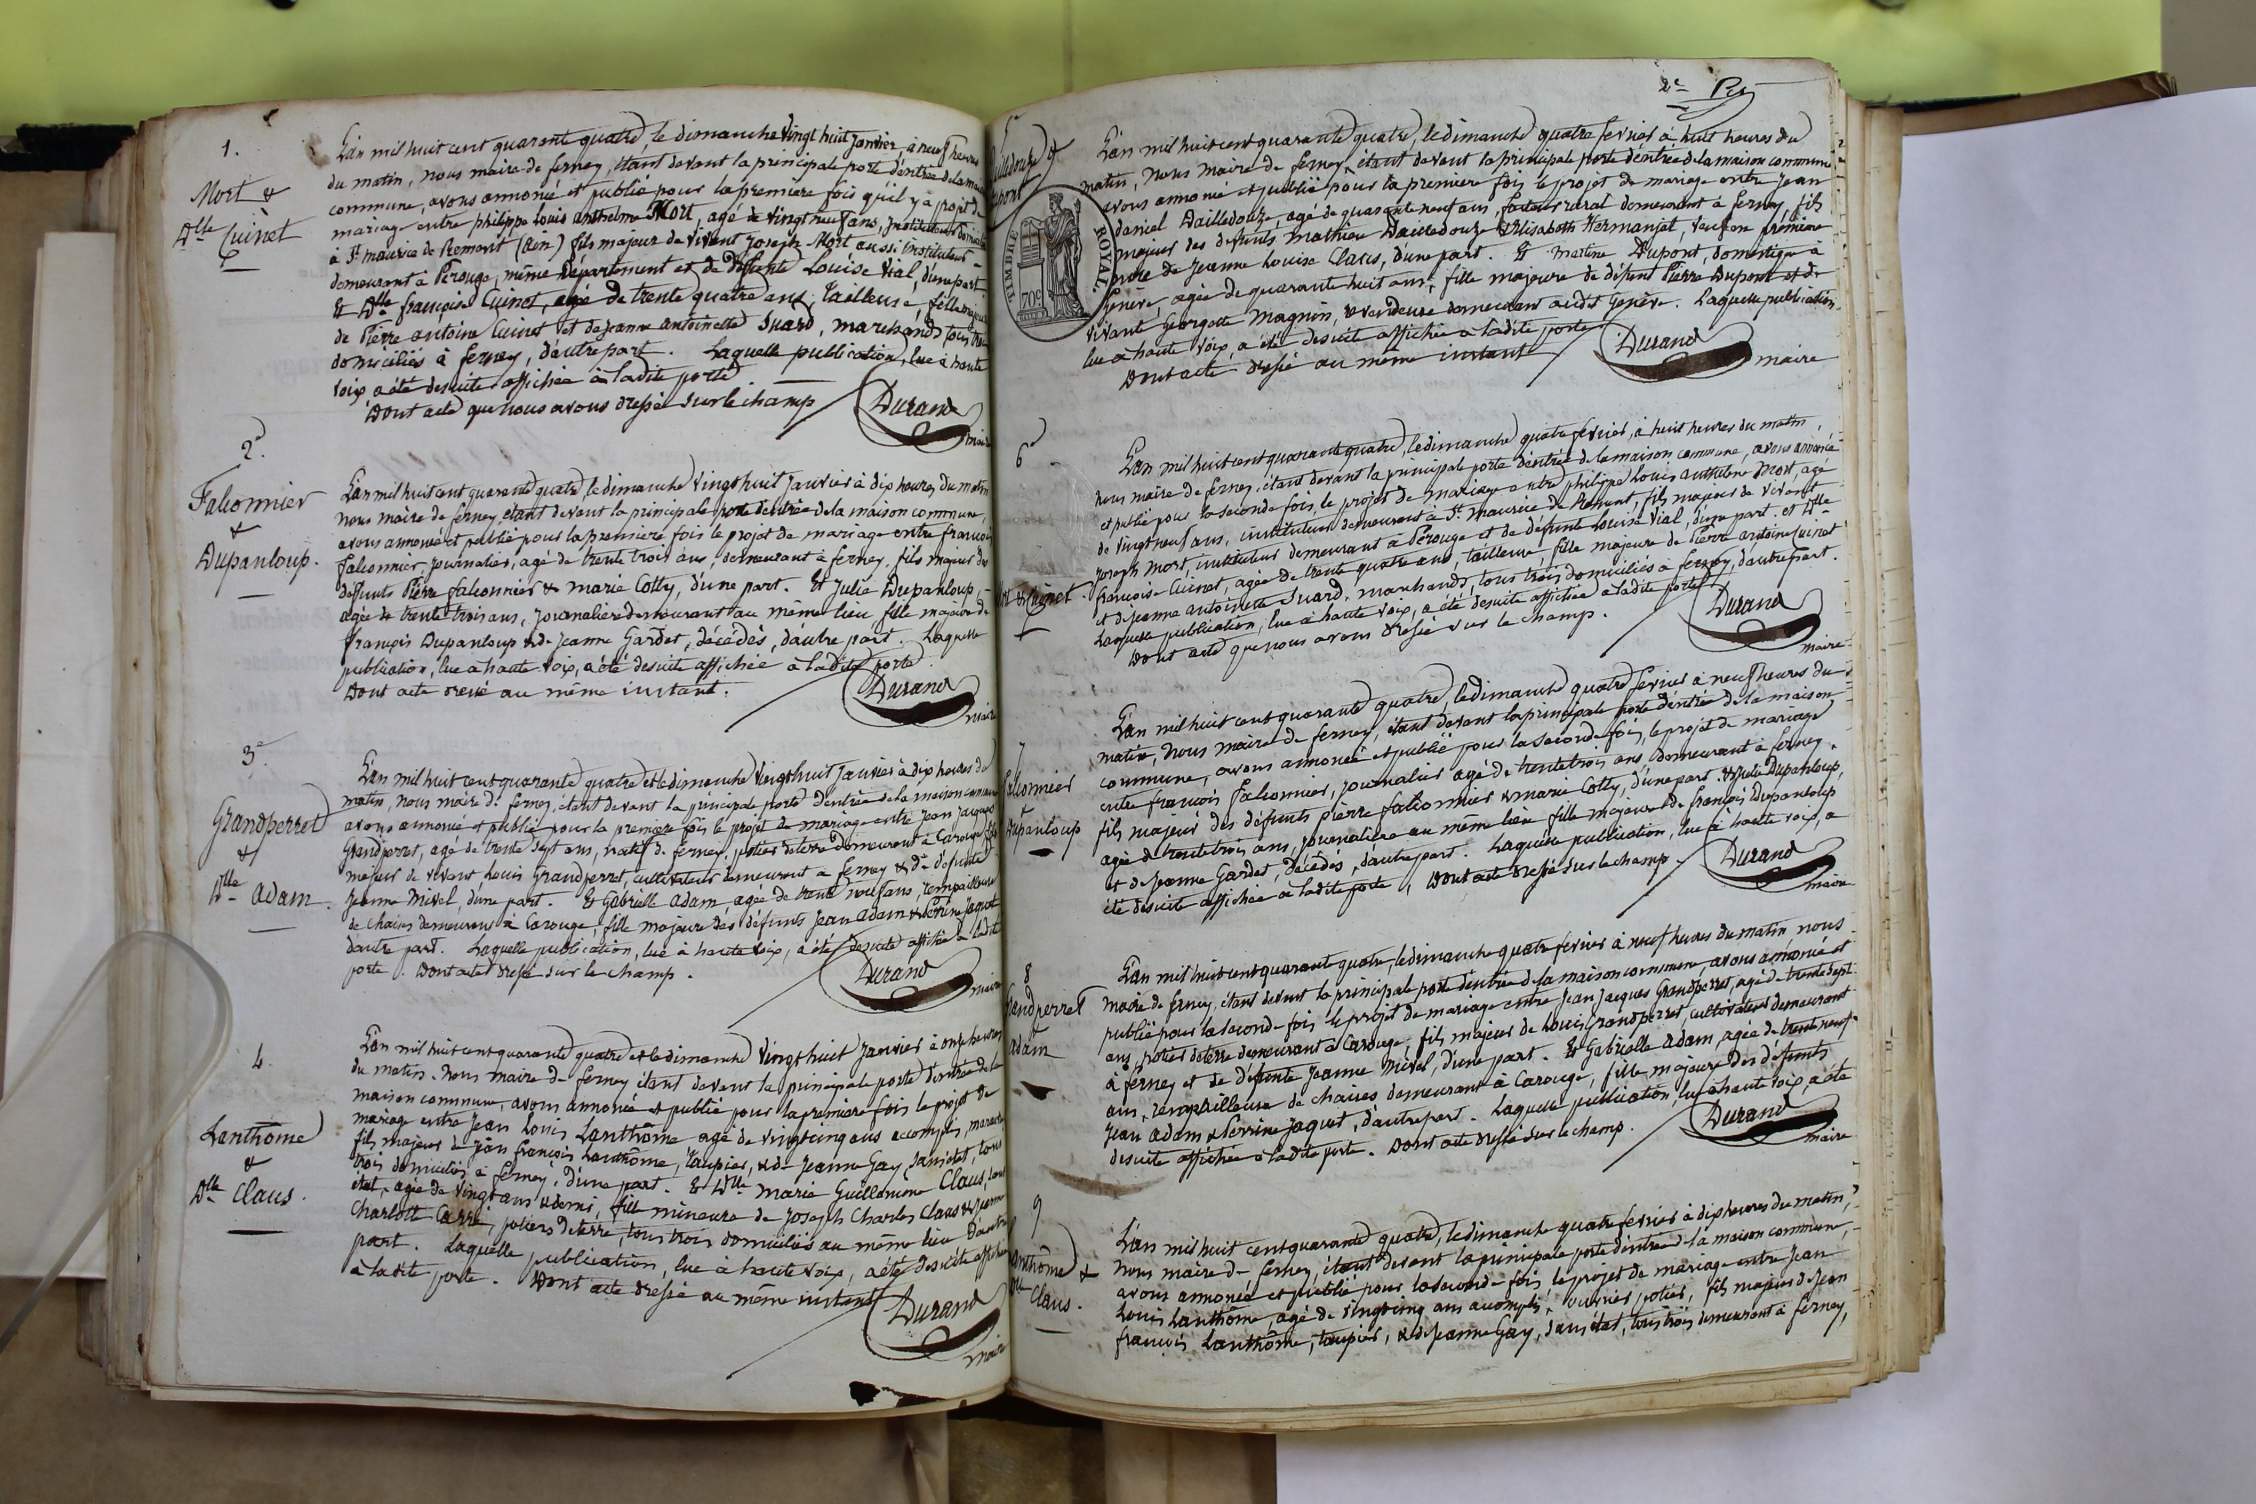 1.
Mort &
Dlle Cuinet
L'an mil huit cent quarante quatre, le dimanche vingt huit janvier, à neuf heures
du matin, nous maire de ferney, étant devant la principale porte d'entrée de la maison
commune, avons annoncé et publié pour la première fois qu'il y a projet de
mariage entre philippe Louis anthelme Mort, agé de vingt neuf ans, instituteur
à St maurice de Remont (ain) fils majeur de vivant Joseph Mort aussi instituteur
demeurant à Pérouge, même département et de défunte Louise Vial, d'une part
Et Dlle françoise Cuinet, agée de trente quatre ans, Tailleuse, fille majeure
de Pierre antoine Cuinet et de Jeanne antoinette Suard, marchands tous trois
domiciliés à ferney, d'autre part. Laquelle publication, lue à haute
voix a été desuite affichée à ladite porte
Dont acte que nous avons dressé sur le champ
Durand
maire
2.
Falconnier
&
Dupanloup.
L'an mil huit cent quarante quatre, le dimanche vingt huit janvier à dix heures du matin
nous maire de ferney, étant devant la principale porte d'entrée de la maison commune,
avons annoncé et publié pour la première fois le projet de mariage entre francois
falconnier, journalier, agé de trente trois ans, demeurant à ferney, fils majeur des
défunts Pierre falconnier & marie Cotty, d'une part. Et Julie Dupanloup,
agée de trente trois ans, journalière demeurant au même lieu fille majeure de
françois Dupanloup & de Jeanne Gardet, décédés, d'autre part. Laquelle
publication, lue à haute voix, a été desuite affichée à ladite porte.
Dont acte dressé au même instant.
Durand
maire
3.
Grandperret
&
Dlle Adam.
L'an mil huit cent quarante quatre et le dimanche vingt huit janvier à dix heures du
matin, nous maire de ferney, étant devant la principale porte d'entrée de la maison commune
avons annoncé et publié pour la première fois le projet de mariage entre Jean Jacques
Grandperret, agé de trente sept ans, natif de ferney, potier de terre demeurant à Carouge fils
majeur de vivant Louis Grandperret, cultivateur demeurant à ferney & de défunte
Jeanne Mivel, d'une part. Et Gabrielle adam, agée de trente neuf ans, rempailleuse
de chaises demeurant à Carouge, fille majeure des défunts Jean adam & Perrine Jaquet
d'autre part. Laquelle publication, lue à haute voix, a été desuite affichée à ladite
porte. Dont acte dressé sur le champ.
Durand
maire
4.
Lanthôme
&
Dlle Claus.
L'an mil huit cent quarante quatre et le dimanche vingt huit janvier à onze heures
du matin. Nous maire de ferney étant devant la principale porte d'entrée de la
maison commune, avons annoncé et publié pour la première fois le projet de
mariage entre Jean Louis Lanthôme agé de vingt cinq ans accomplis,
fils majeur de Jean françois Lanthôme, taupier, & de Jeanne Gay sans état, tous
trois domiciliés à ferney, d'une part. Et Dlle Marie Guillemine Claus, sans
état, agée de vingt ans & demi, fille mineure de Joseph Charles Claus & de Jeanne
Charlotte Carré, potiers de terre, tous trois domiciliés au même lieu d'autre
part. Laquelle publication, lue à haute voix, a été desuite affichée
à ladite porte. Dont acte dressé au même instant
Durand
maire
2e
TIMBRE ROYAL.
70c
L'an mil huit cent quarante quatre, le dimanche quatre fevrier à huit heures du
matin, nous maire de ferney, étant devant la principale porte d'entrée de la maison commune
avons annoncé et publié pour la première fois le projet de mariage entre Jean
daniel Dailledouze, agé de quarante neuf ans, facteur rural demeurant à ferney, fils
majeur des défunts mathieu Dailledouze & Elisabeth Hermanjat, veuf en première
noce de Jeanne Louise Claus, d'une part. Et Dupont, domestique à
Genève, agée de quarante huit ans, fille majeure de défunt Pierre Dupont et de
vivante Georgette Magnin, vendeuse demeurant audit Genève. Laquelle publication,
lue à haute voix, a été desuite affichée à ladite porte
Dont acte dressé au même instant
Durand
maire
6
Mort & Cuinet.
L'an mil huit cent quarante quatre, le dimanche quatre fevrier, à huit heures du matin,
nous maire de ferney, étant devant la principale porte d'entrée de la maison commune, avons annoncé
et publié pour la seconde fois, le projet de mariage entre philippe Louis anthelme Mort, agé
de vingt neuf ans, instituteur demeurant à St. Maurice de Remont, fils majeur de vivant
Joseph Mort, instituteur demeurant à Pérouge et de défunte Louise Vial, d'une part. et Dlle
francoise Cuinet, agée de trente quatre ans, tailleuse, fille majeure de Pierre antoine Cuinet
et de Jeanne antoinette Suard, marchands, tous trois domiciliés à ferney, d'autre part.
Laquelle publication, lue à haute voix, a été desuite affichée à ladite porte
Dont acte que nous avons dressé sur le champ.
Durand
maire
7
falconnier
&
Dupanloup
L'an mil huit cent quarante quatre, le dimanche quatre fevrier à neuf heures du
matin, nous maire de ferney, étant devant la principale porte d'entrée de la maison
commune, avons annoncé et publié pour la seconde fois, le projet de mariage
entre francois falconnier, journalier agé de trente trois ans, demeurant à ferney,
fils majeur des défunts pierre falconnier & marie Cotty, d'une part. & Julie Dupanloup,
agée de trente trois ans, journalière au même lieu fille majeure de françois Dupanloup
et de Jeanne Gardet décédés, d'autre part. Laquelle publication, lue à haute voix, a
été desuite affichée à ladite porte, Dont acte dressé sur le champ
Durand
maire
8
Grandperret
&
Adam
L'an mil huit cent quarante quatre, le dimanche quatre fevrier à neuf heures du matin nous
maire de ferney, étant devant la principale porte d'entrée de la maison commune, avons annoncé et
publié pour la seconde fois le projet de mariage entre Jean Jacques Grandperret, agé de trente sept
ans, potier de terre demeurant à Carouge, fils majeur de Louis Grandperret, cultivateur demeurant
à ferney et de défunte Jeanne Mivel, d'une part. Et Gabrielle Adam, agée de trente neuf
ans, rempailleuse de chaises demeurant à Carouge, fille majeure des défunts
Jean Adam & Perrine Jaquet, d'autre part. Laquelle publication, lue à haute voix, a été
desuite affichée à ladite porte. Dont acte dressé sur le champ.
Durand
maire
9
Lanthôme &
Dlle Claus.
L'an mil huit cent quarante quatre, le dimanche quatre fevrier à dix heures du matin,
Nous maire de ferney, étant devant la principale porte d'entrée de la maison commune,
avons annoncé et publié pour la seconde fois le projet de mariage entre Jean
Louis Lanthôme, agé de vingt cinq ans accomplis, ouvrier potier, fils majeur de Jean
françois Lanthôme, taupier, & de Jeanne Gay, sans état, tous trois demeurant à ferney,